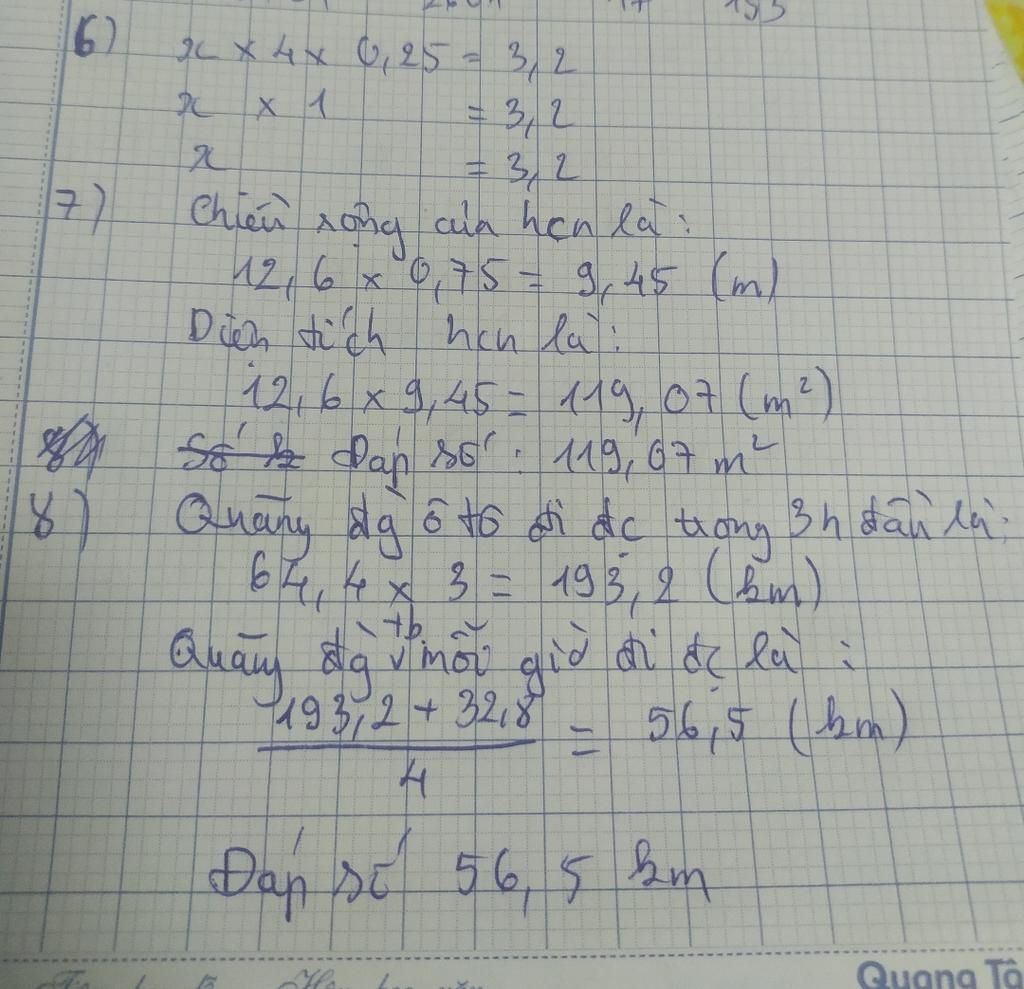 6) x × 4 × 0,25 = 3,2
x × 1 = 3,2
x = 3,2
7) Chiều rộng của hcn là:
12,6 × 0,75 = 9,45 (m)
Diện tích hcn là:
12,6 × 9,45 = 119,07 (m²)
Số Đáp số: 119,07 m²
8) Quãng đg ô tô đi đc trong 3h đầu là:
64,4 × 3 = 193,2 (km)
Quãng đg tb mỗi giờ đi đc là:
193,2 + 32,8
= 56,5 (km)
4
Đáp số 56,5 km
Quang Tô